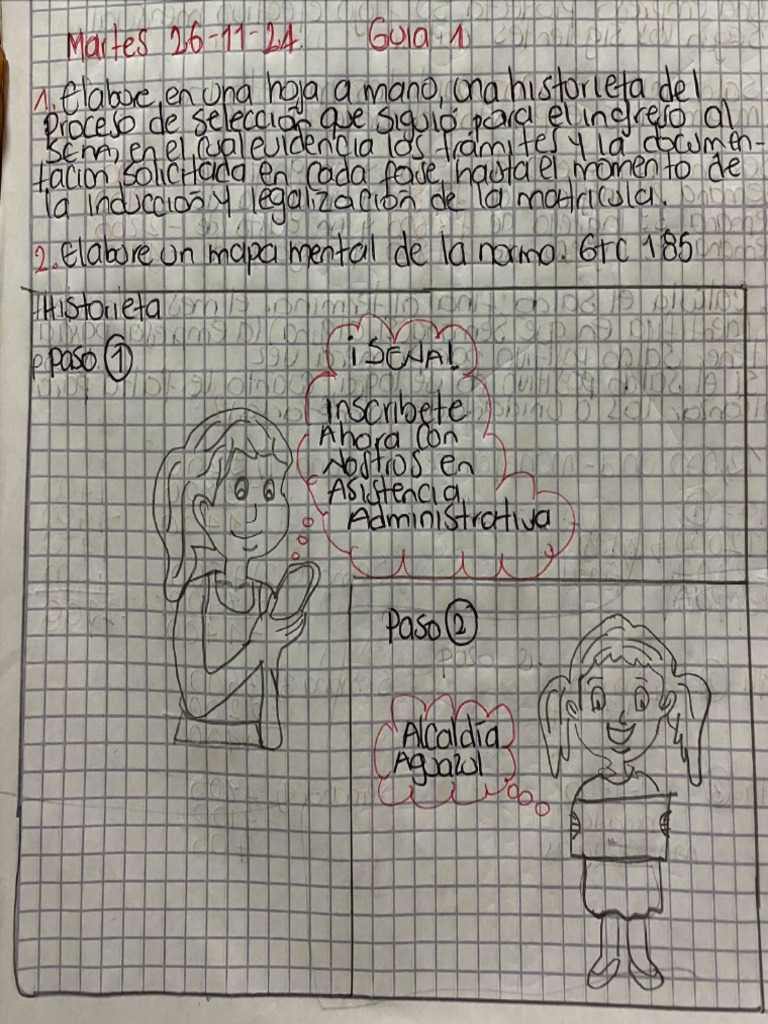 Martes 26-11-24. Guia 1
1. Elabore, en una hoja a mano, una historieta del
Proceso de selección que siguió para el ingreso al
SENA, en el cual evidencia los trámites y la documen-
tación solicitada en cada fase hasta el momento de
la inducción y legalización de la matricula.
2. Elabore un mapa mental de la norma. GTC 185
Historieta
Paso 1
¡SENA!
Inscribete
Ahora con
Nostros en
Asistencia
Administrativa
Paso 2
Alcaldía
Aguazul